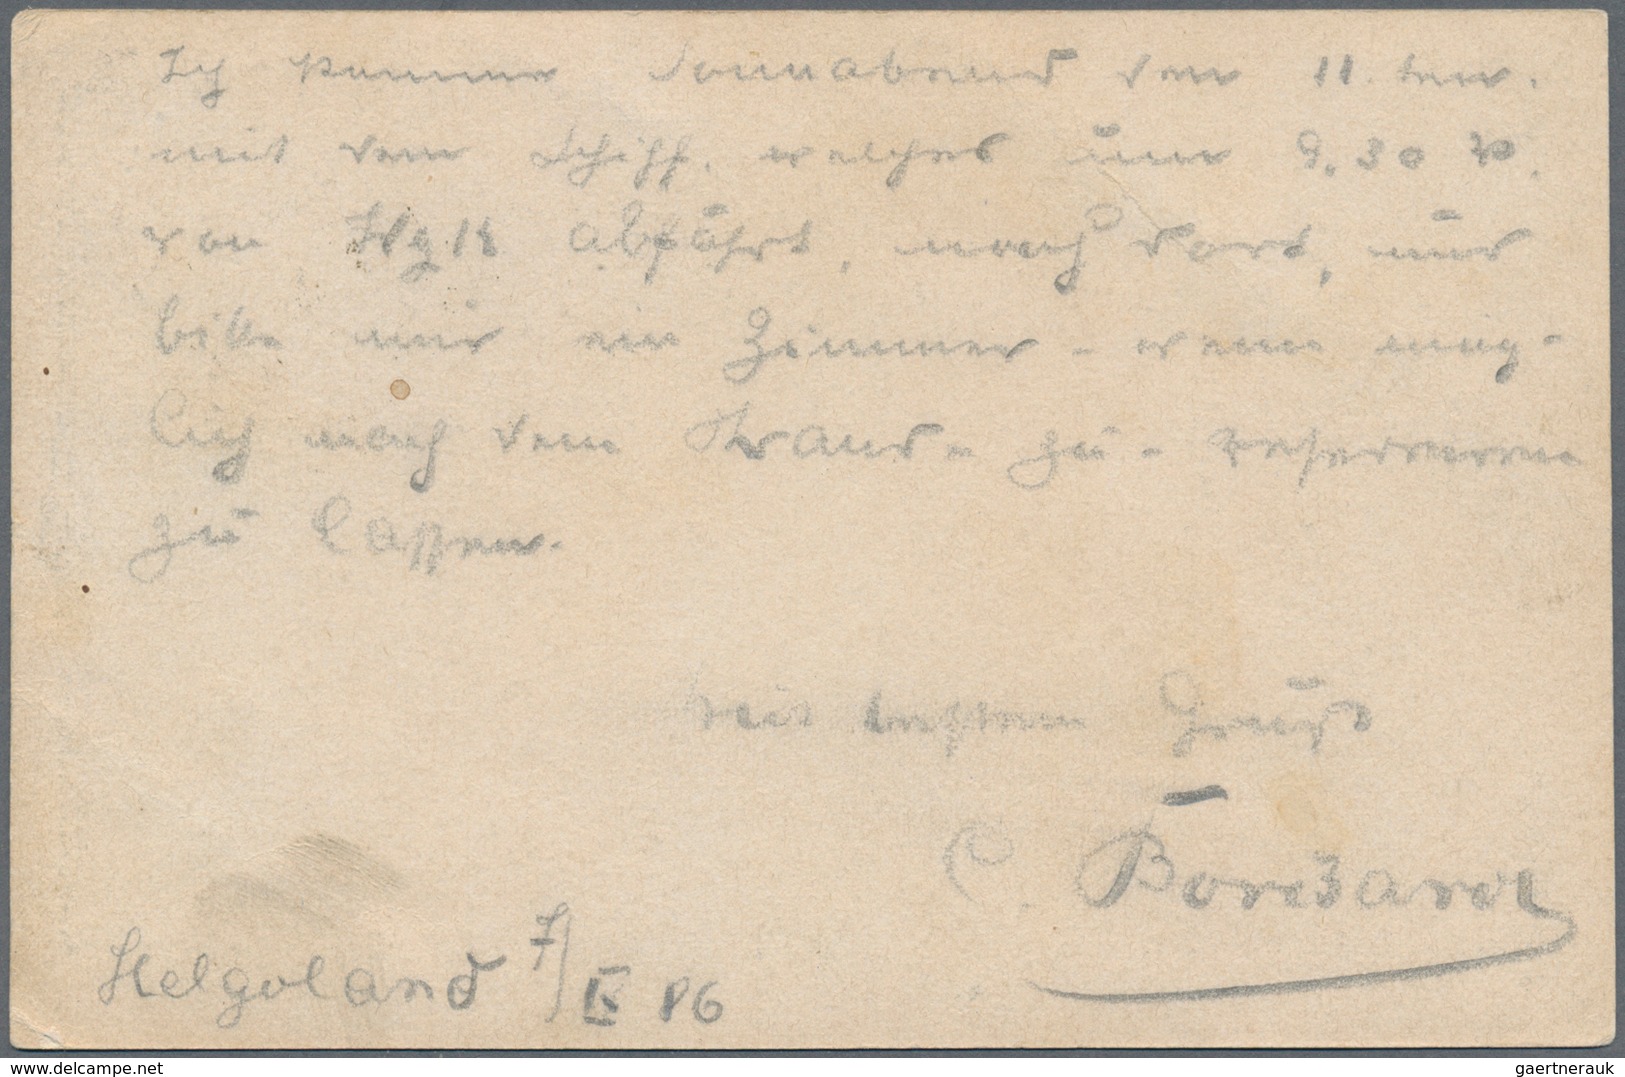 Ich komme Sonnabend den 11. ten.
mit dem Schiff, welches um 9.30
von abfährt, nach dort, und
bitte mir ein Zimmer - wenn mög-
lich nach dem Strande zu - reserviren
zu lassen.
Mit bestem Gruß
C.
Helgoland 7/IX 86
delcampe.net
gaertnerauk